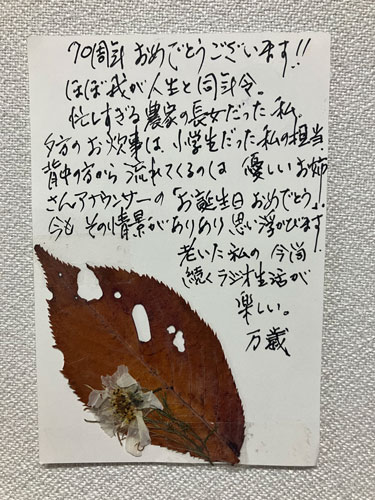 70周年 おめでとうございます!!
ほぼ我が人生と同年令。
忙しすぎる農家の長女だった私。
夕方のお炊事は、小学生だった私の担当
背中の方から流れてくるのは 優しいお姉
さんアナウンサーの「お誕生日 おめでとう」。
今も その情景がありあり思い浮かびます
老いた私の 今尚
続くラジオ生活が
楽しい。
万歳